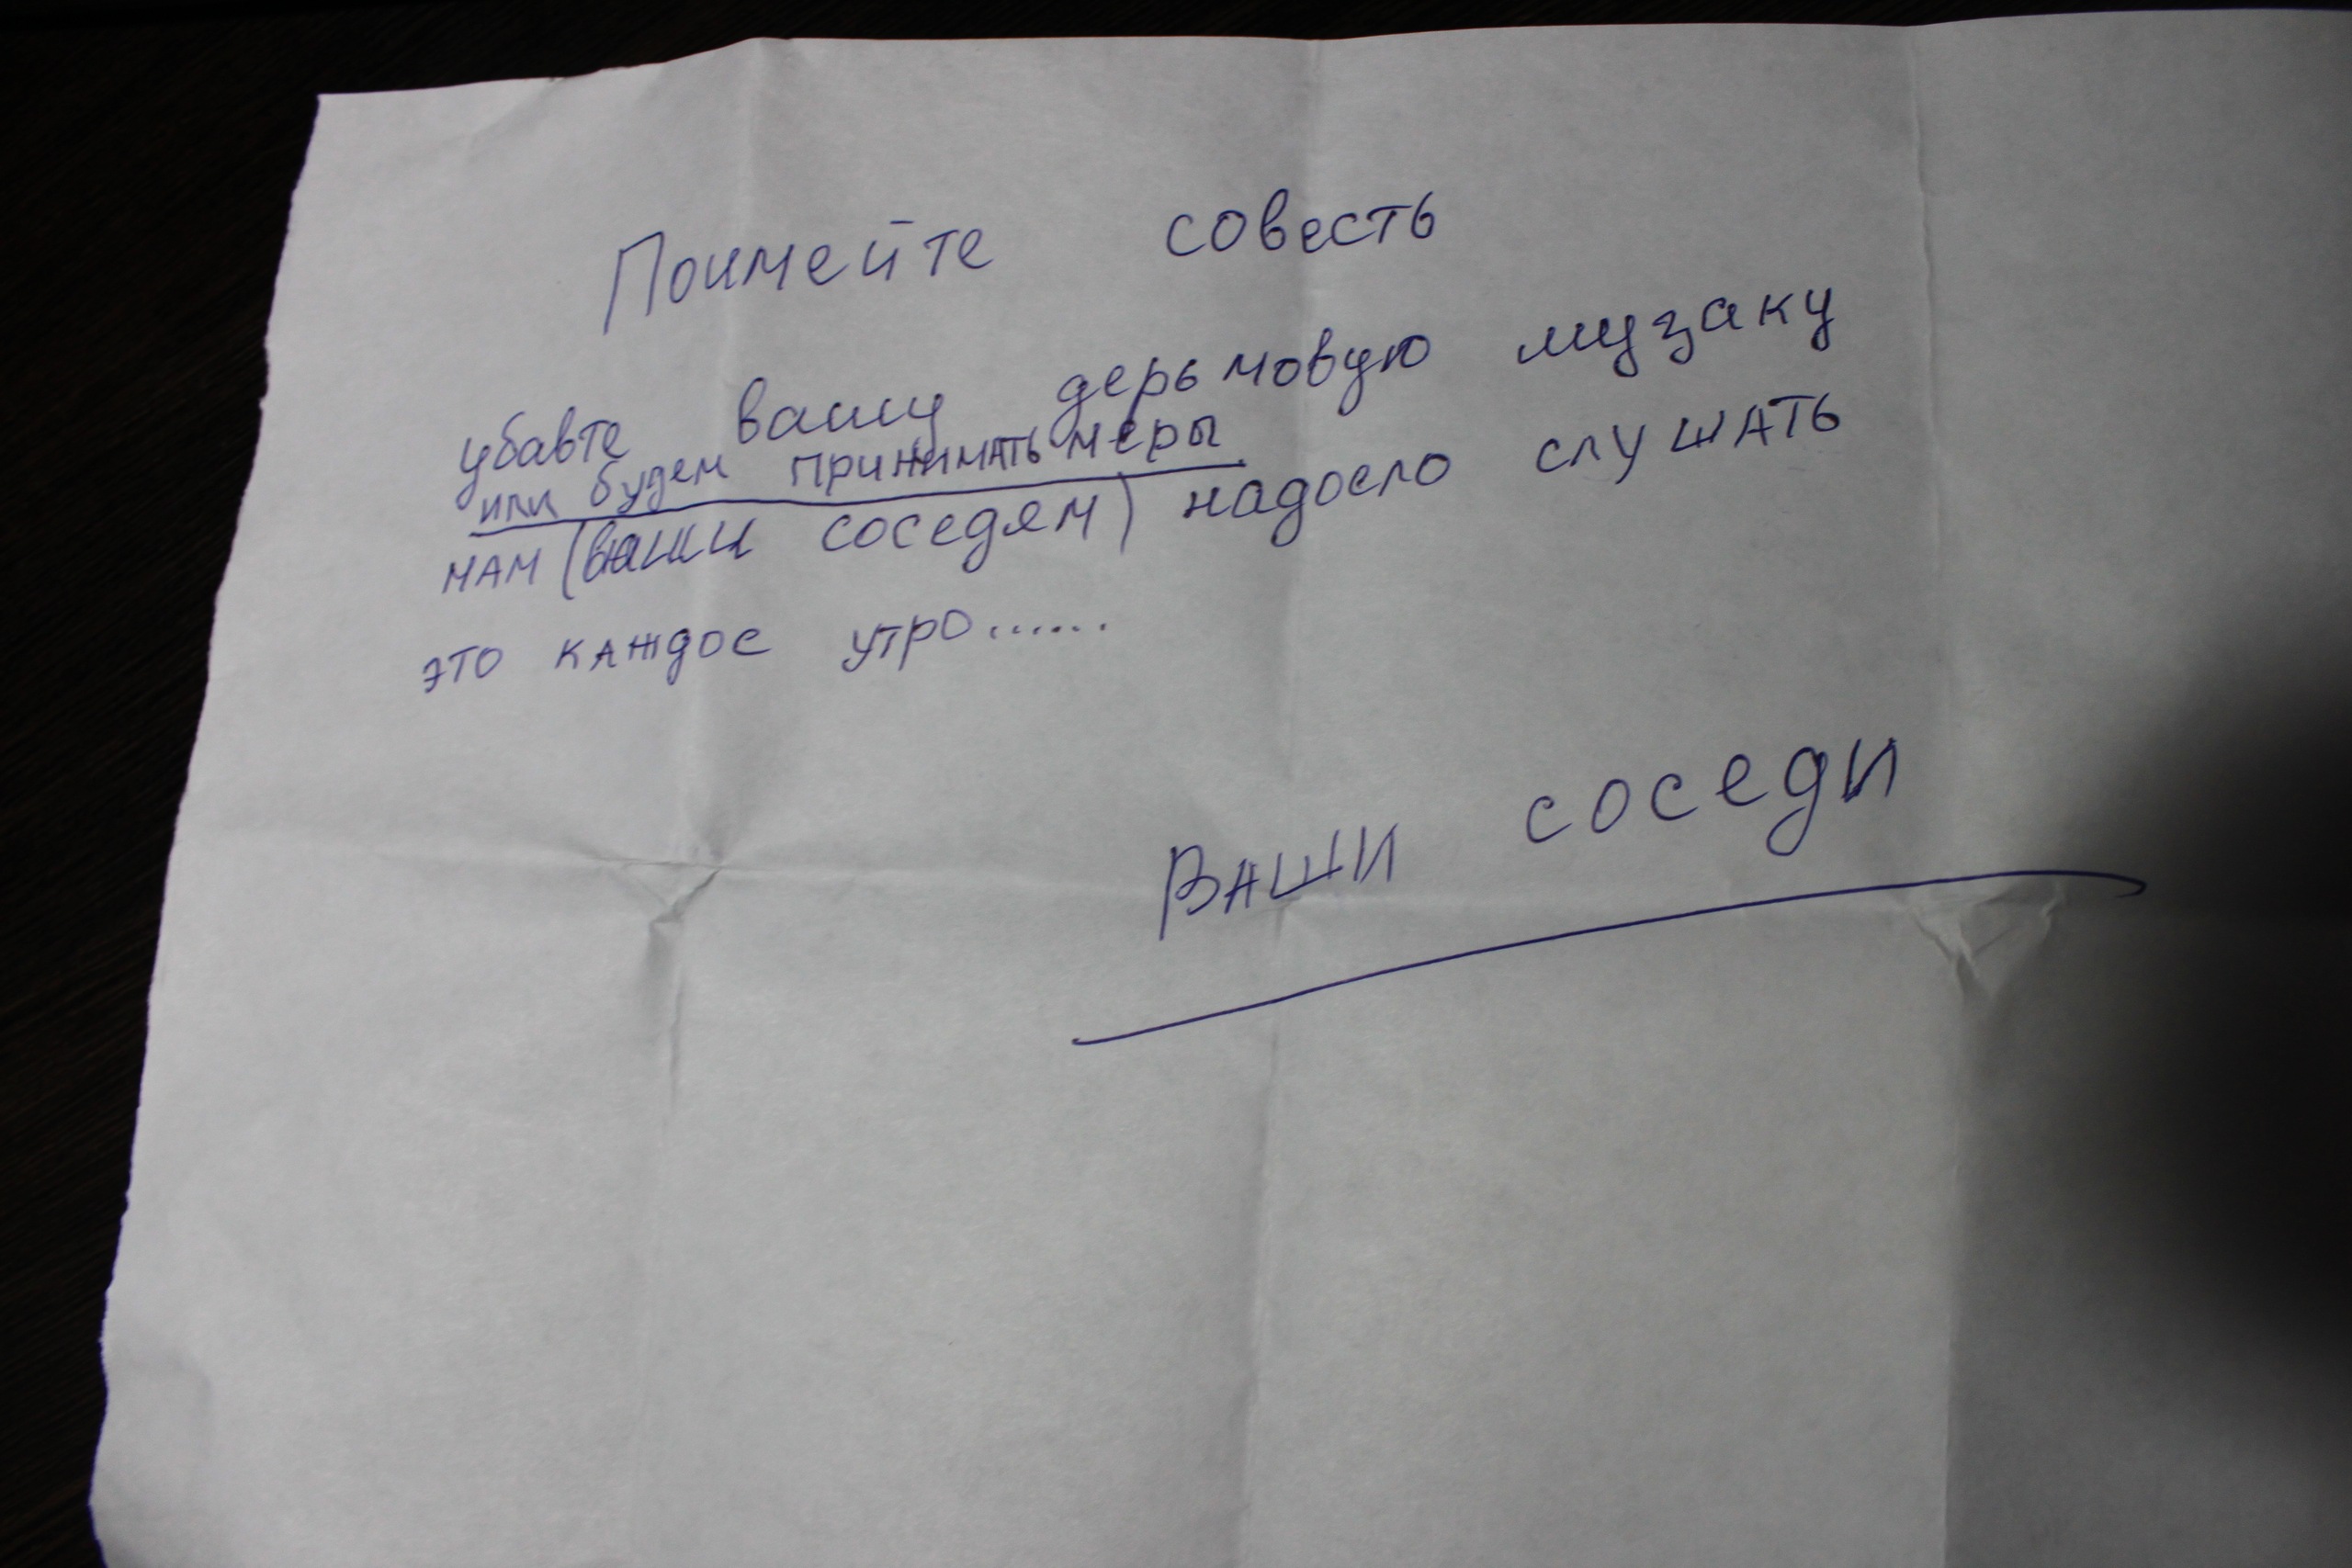 Поимейте совесть
убавте вашу дерьмовую музаку
или будем принимать меры
нам (ваши соседям) надоело слушать
это каждое утро......
Ваши соседи